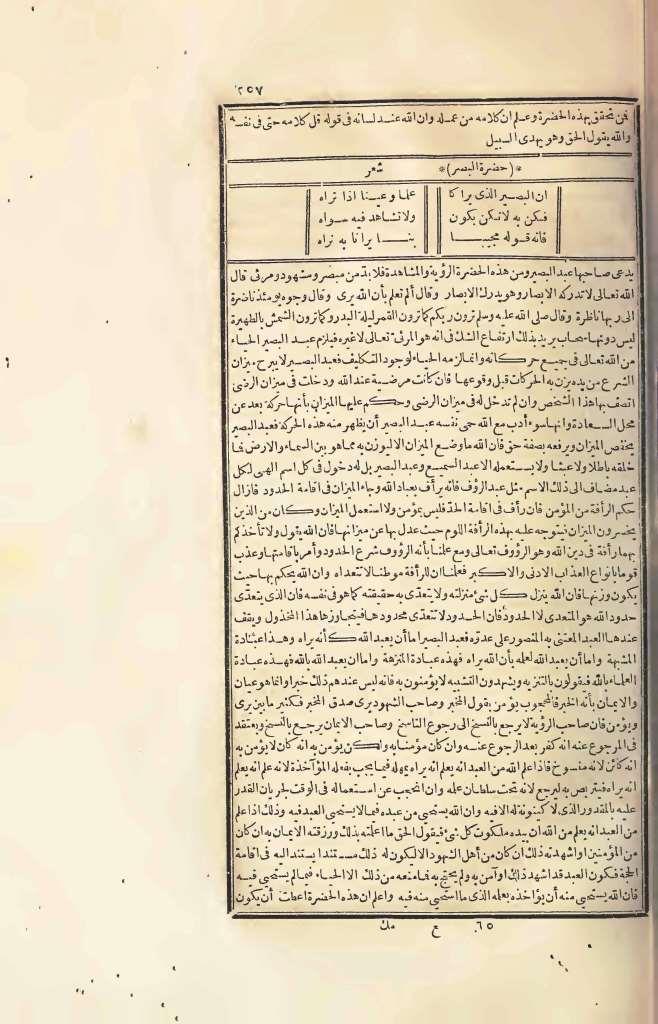 ٢٥٧
فمن تحقق بهذه الحضرة وعلم ان كلامه من عمله وان الله عند لسانه في قوله قل كلامه حتى في نفسه
والله يقول الحق وهو يهدى السبيل
*(حضرة البصر)* شعر
ان البصير الذى يراكا علما وعينا اذا تراه
فكن به لا تكن بكون ولا تشاهد فيه سواه
فانه قوله مجيبا بنا يرانا به نراه
يدعى صاحبها عبد البصير ومن هذه الحضرة الرؤية والمشاهدة فلابد من مبصر ومشهود ومرئى قال
الله تعالى لا تدركه الابصار وهو يدرك الابصار وقال ألم تعلم بأن الله يرى وقال وجوه يومئذ ناضرة
الى ربها ناظرة وقال صلى الله عليه وسلم ترون ربكم كما ترون القمر ليلة البدر وكما ترون الشمس بالظهيرة
ليس دونها سحاب يريد بذلك ارتفاع الشك فى انه هو المرئى تعالى لا غيره فيلزم عبد البصير الحياء
من الله تعالى فى جميع حركاته وانما لزمه الحياء لوجود التكليف فعبد البصير لا يبرح ميزان
الشرع من يده يزن به الحركات قبل وقوعها فان كانت مرضية عند الله ودخلت فى ميزان الرضى
اتصف بها هذا الشخص وان لم تدخل له فى ميزان الرضى وحكم عليها الميزان بأنها حركة بعد عن
محل السعادة وانها سوء أدب مع الله حمى نفسه عبد البصير أن يظهر منه هذه الحركة فعبد البصير
يخفض الميزان ويرفعه بصفة حق فان الله ما وضع الميزان الا ليوزن به مما هو بين السماء والارض فما
خلقه باطلا ولا عبثا ولا يستعمله الا عبد السميع وعبد البصير بل له دخول فى كل اسم الهى لكل
عبد مضاف الى ذلك الاسم مثل عبد الرؤف فانه يرأف بعباد الله وجاء الميزان فى اقامة الحدود فازال
حكم الرأفة من المؤمن فان رأف فى اقامة الحد فليس بمؤمن ولا استعمل الميزان وكان من الذين
يخسرون الميزان فيتوجه عليه بهذه الرأفة اللوم حيث عدل بها عن ميزانها فان الله يقول ولا تأخذكم
بهما رأفة فى دين الله وهو الرؤوف تعالى ومع علمنا بأنه الرؤوف شرع الحدود وأمر باقامتها وعذب
قوما بانواع العذاب الادنى والاكبر فعلمنا ان للرأفة موطنا لا تتعداه وان الله يحكم بها حيث
يكون وزنها فان الله ينزل كل شئ منزلته ولا يتعدى به حقيقته كما هو فى نفسه فان الذى يتعدى
حدود الله هو المتعدى لا الحدود فان الحدود لا تتعدى محدودها فيتجاوزها هذا المخذول ويقف
عندها العبد المعتنى به المنصور على عدوه فعبد البصير اما أن يعبد الله كأنه يراه وهذا عبادة
المشبهة واما أن يعبد الله لعلمه بأن الله يراه فهذه عبادة المنزهة واما ان يعبد الله بالله فهذه عبادة
العلماء بالله فيقولون بالتنزيه ويشهدون التشبيه لا يؤمنون به فانه ليس عندهم ذلك خبرا وانما هو عيان
والايمان بأنه الخبر فالمحجوب يؤمن بقول المخبر وصاحب الشهود يرى صدق المخبر فكثير ما بين يرى
ويؤمن فان صاحب الرؤية لا يرجع بالنسخ الى رجوع الناسخ وصاحب الايمان يرجع بالنسخ ويعتقد
فى المرجوع عنه انه كفر بعد الرجوع عنه وان كان مؤمنا به ولكن يؤمن به انه كان لا يؤمن به
انه كائن لانه منسوخ فاذا علم الله من العبد انه يعلم انه يراه يمهله فيما يجب بفعله المؤاخذة لانه علم انه يعلم
انه يراه فيتربص به ليرجع لانه تحت سلطان علمه وان انحجب عن استعماله فى الوقت لجريان القدر
عليه بالمقدور الذى لا كينونة له الا فيه وان الله يستحى من عبده فيما لا يستحى العبد فيه وذلك اذا علم
من العبد انه يعلم من الله أن بيده ملكوت كل شئ فيقول الحق ما اعلمته بذلك ورزقته الايمان به ان كان
من المؤمنين او اشهدته ذلك ان كان من أهل الشهود الا ليكون له ذلك مستندا يستند اليه فى اقامة
الحجة فكون العبد قد اشهد ذلك او آمن به ولم يحتج به فما منعه من ذلك الا الحياء فيما لم يستحى فيه
فان الله يستحى منه أن يؤاخذه بعلمه الذى ما استحى منه فيه واعلم ان هذه الحضرة اعطت أن يكون
٦٥ ع مك